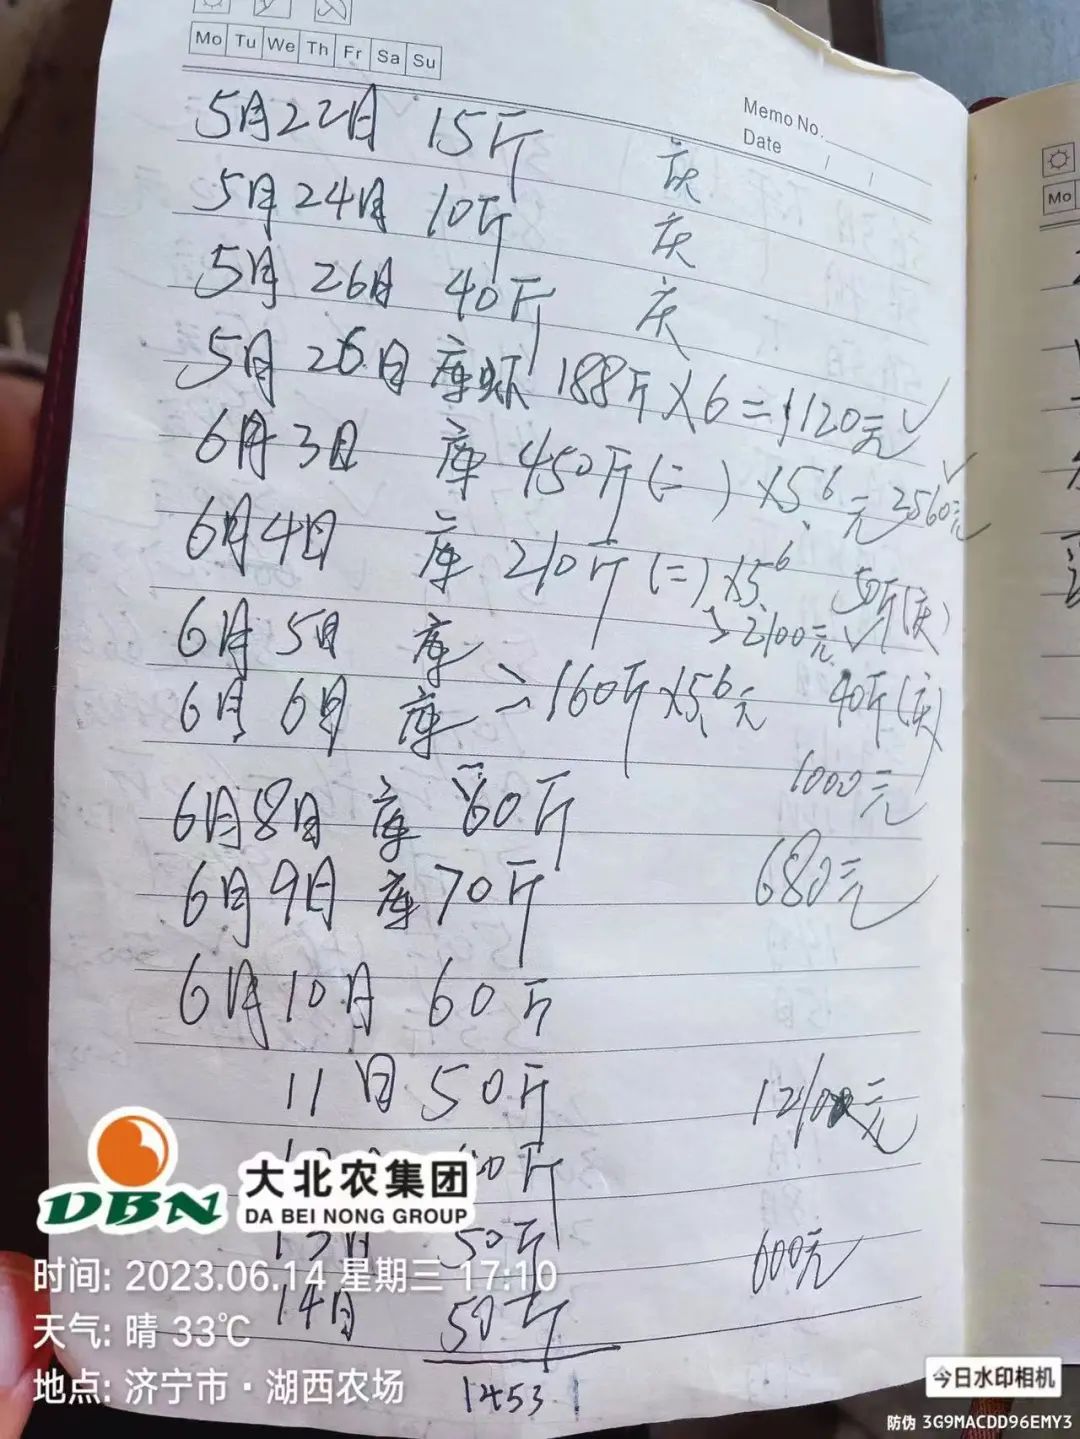 Mo Tu We Th Fr Sa Su
Memo No.
Date / /
5月22日 15斤 庆
5月24日 10斤 庆
5月26日 40斤 庆
5月26日 库虾 188斤×6=1120元✓
6月3日 库 450斤(二)×5.6元 2560元✓
6月4日 库 210斤(二)×5.6 50斤(庆)
2100元✓
6月5日 库
6月6日 库 160斤×5.6元 40斤(庆)
1000元
6月8日 库 60斤
680元
6月9日 库 70斤
6月10日 60斤
11日 50斤 1210元
斤
13日 50斤 600元
14日 50斤
1453
Mo
DBN 大北农集团
DA BEI NONG GROUP
时间: 2023.06.14 星期三 17:10
天气: 晴 33℃
地点: 济宁市·湖西农场
今日水印相机
防伪 3G9MACDD96EMY3